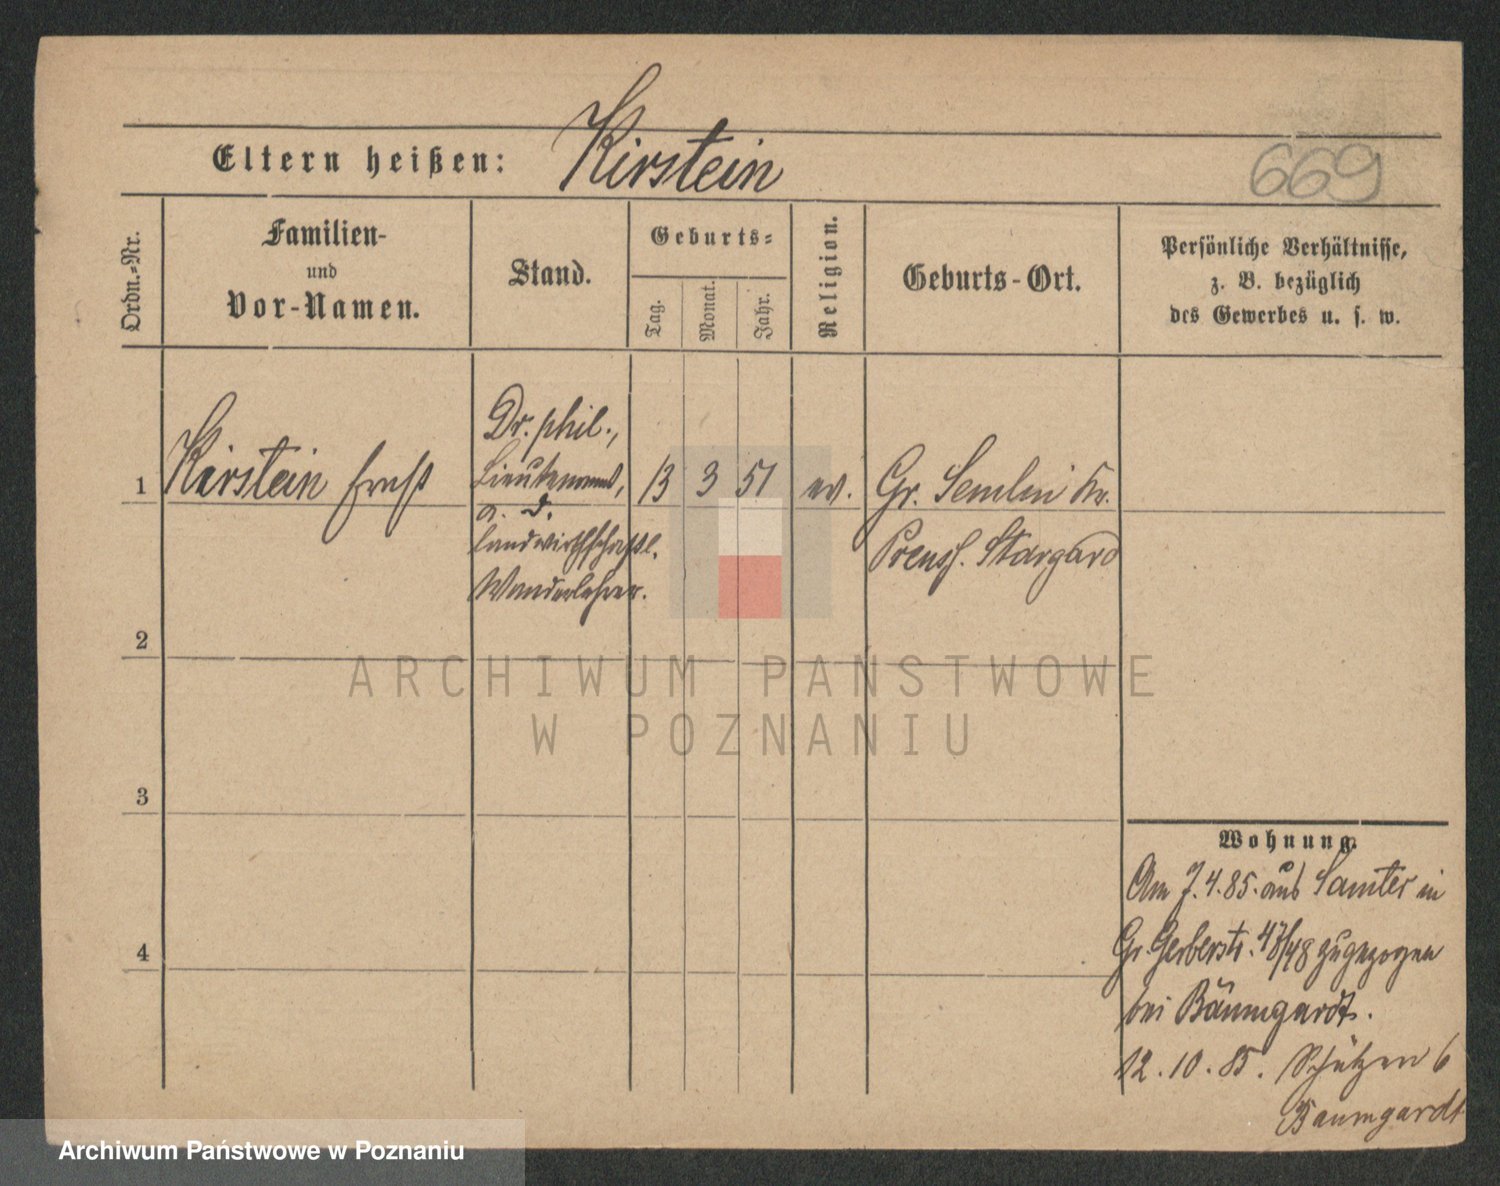 Eltern heißen: Kirstein
669
Ordn.-Nr.
Familien-
und
Vor-Namen.
Stand.
Geburts-
Tag.
Monat.
Jahr.
Religion.
Geburts-Ort.
Persönliche Verhältnisse,
z. B. bezüglich
des Gewerbes u. s. w.
1
Kirstein Ernst
Dr. phil.,
Lieutenant,
a. D.
landwirthschaftl.
Wanderlehrer.
13 3 51
ev.
Gr. Semlin Kr.
Preuss. Stargard
2
3
4
Wohnung.
Am 7.4.85. aus Samter in
Gr. Gerberstr. 47/48 zugezogen
bei Baumgardt.
12.10.85. Schützen 6
Baumgardt
ARCHIWUM PAŃSTWOWE
W POZNANIU
Archiwum Państwowe w Poznaniu